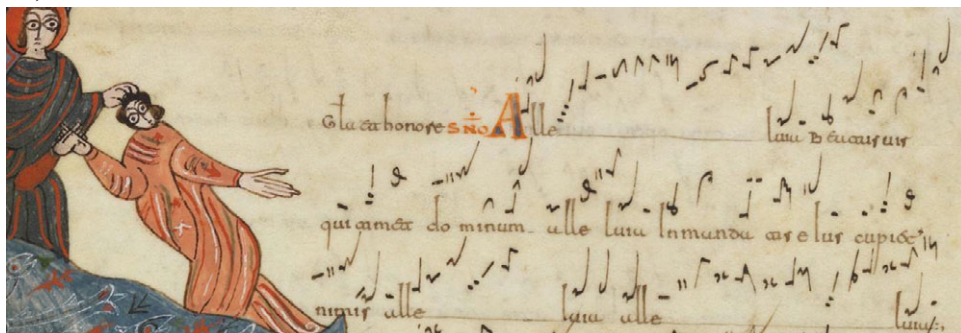 Gła et honore SNO Alle luia Beatus uir
qui timet dominum alle luia In mandatis eius cupiet
nimis alle luia alle luia